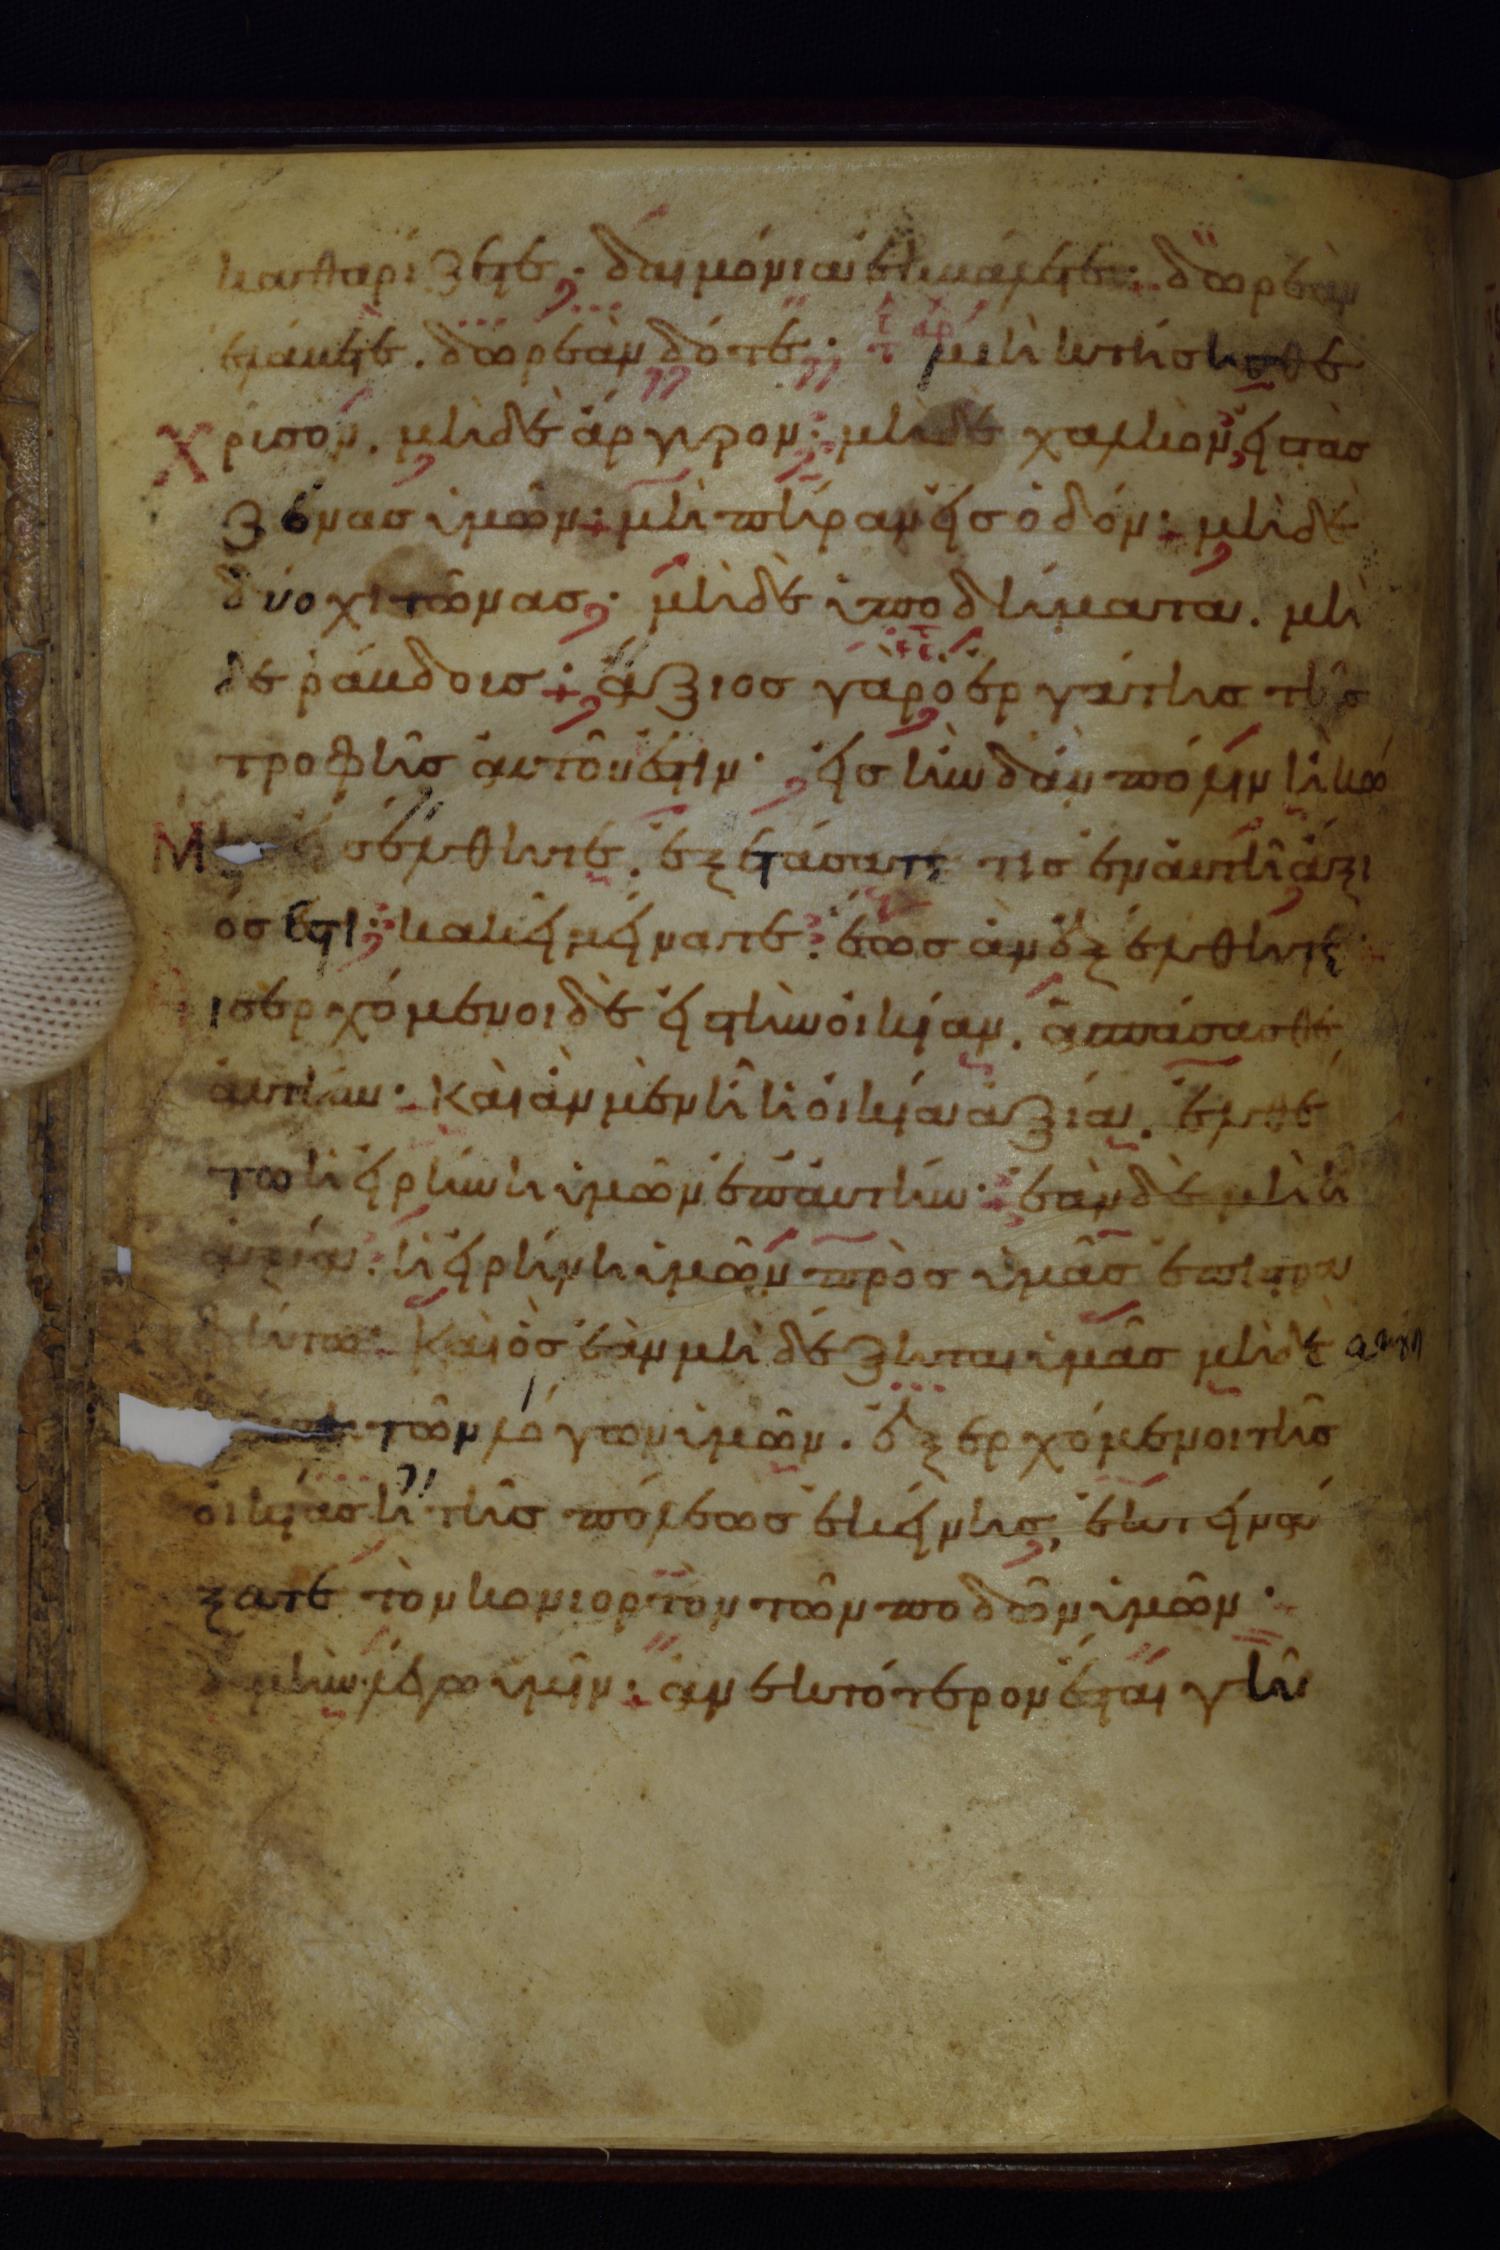 καθαρίζεται. δαιμόνια ἐκβάλεται· δωρεὰν
ἐλάβεται. δωρεὰν δότε· μὴ κτήσησθε
χρισὸν. μὴδὲ ἄργιρον· μὴδὲ χαλκὸν, εἰ τὰσ
ζόνασ ιμῶν· μὴ πήραν εἰσ ὁδόν· μὴδὲ
δύο χιτῶνασ· μὴδὲ ἰποδήματα. μὴ
δὲ ράβδοισ· ἄξιοσ γὰρ ὁ ἐργάτησ τῆσ
τροφῆσ ἀυτοῦ ἐστιν· εἰσ ἣν δ' ἂν πόλιν ἢ κώ
μ εἰσέλθητε. ἐξετάσατε τίσ ἐν ἀυτῆ ἄξι
όσ ἐστι· κακεῖ μείνατε· ἕωσ ἂν ἐξέλθητε·
ισερχόμενοι δὲ εἰ στὴν οἰκείαν. ἀσπάσασθε
ἀυτήν· Καὶ ἂν μὲν ἦ ἡ οἰκεία ἀξία. ἐλθέ
τω ἡ εἰρήνη ιμῶν ἐπ' ἀυτήν· ἐὰν δὲ μὴ ἦ
ἀξία· ἡ εἰρήνη ιμῶν πρὸσ ιμᾶσ ἐπιστρα
φήτω· Καὶ ὃσ ἐὰν μὴ δέξηται ιμᾶσ μὴδὲ
τῶν λόγων ιμῶν. ἐξερχόμενοι τῆσ
οἰκείασ ἢ τῆσ πόλεωσ ἐκείνησ, ἐκτεινά
ξατε τὸν κονιορτὸν τῶν ποδῶν ιμῶν·
ἀμὴν λέγω ιμῖν· ἀνεκτότερον ἔσται γῆ